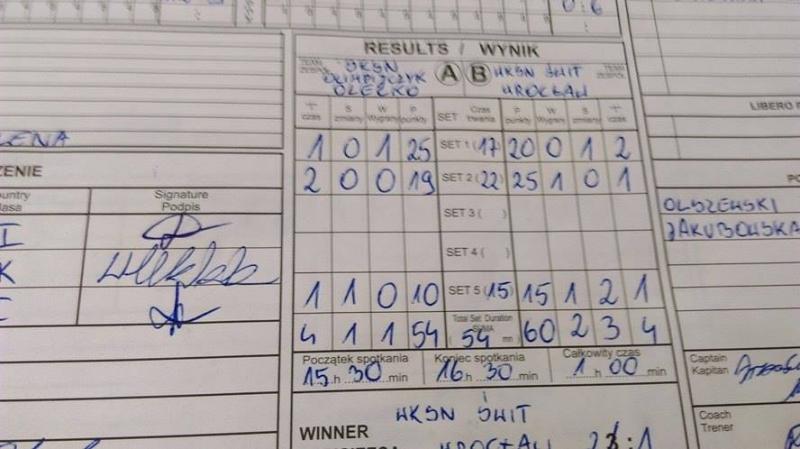 0:6
RESULTS / WYNIK
TEAM
ZESPÓŁ
OLIMPIJCZYK
OLECKO
A B
UKSN SHIT
WROCŁAW
TEAM
ZESPÓŁ
T
czas
S
zmiany
W
Wygrany
P
punkty
SET
Czas
trwania
P
punkty
W
Wygrany
S
zmiany
T
czas
LIBERO
LENA
1 0 1 25 SET 1 (17) 20 0 1 2
ZENIE
2 0 0 19 SET 2 (22) 25 1 0 1
Signature
Podpis
SET 3 ( )
OLSZEWSKI
JAKUBOWSKA
I
SET 4 ( )
K
1 1 0 10 SET 5 (15) 15 1 2 1
4 1 1 54 Total Set Duration (54 mn) 60 2 3 4
Początek spotkania Koniec spotkania Całkowity czas
15 h 30 min 16 h 30 min 1 h 00 min
Captain
Kapitan
Coach
Trener
UKSN SHIT
WINNER
WROCŁAW 2:1